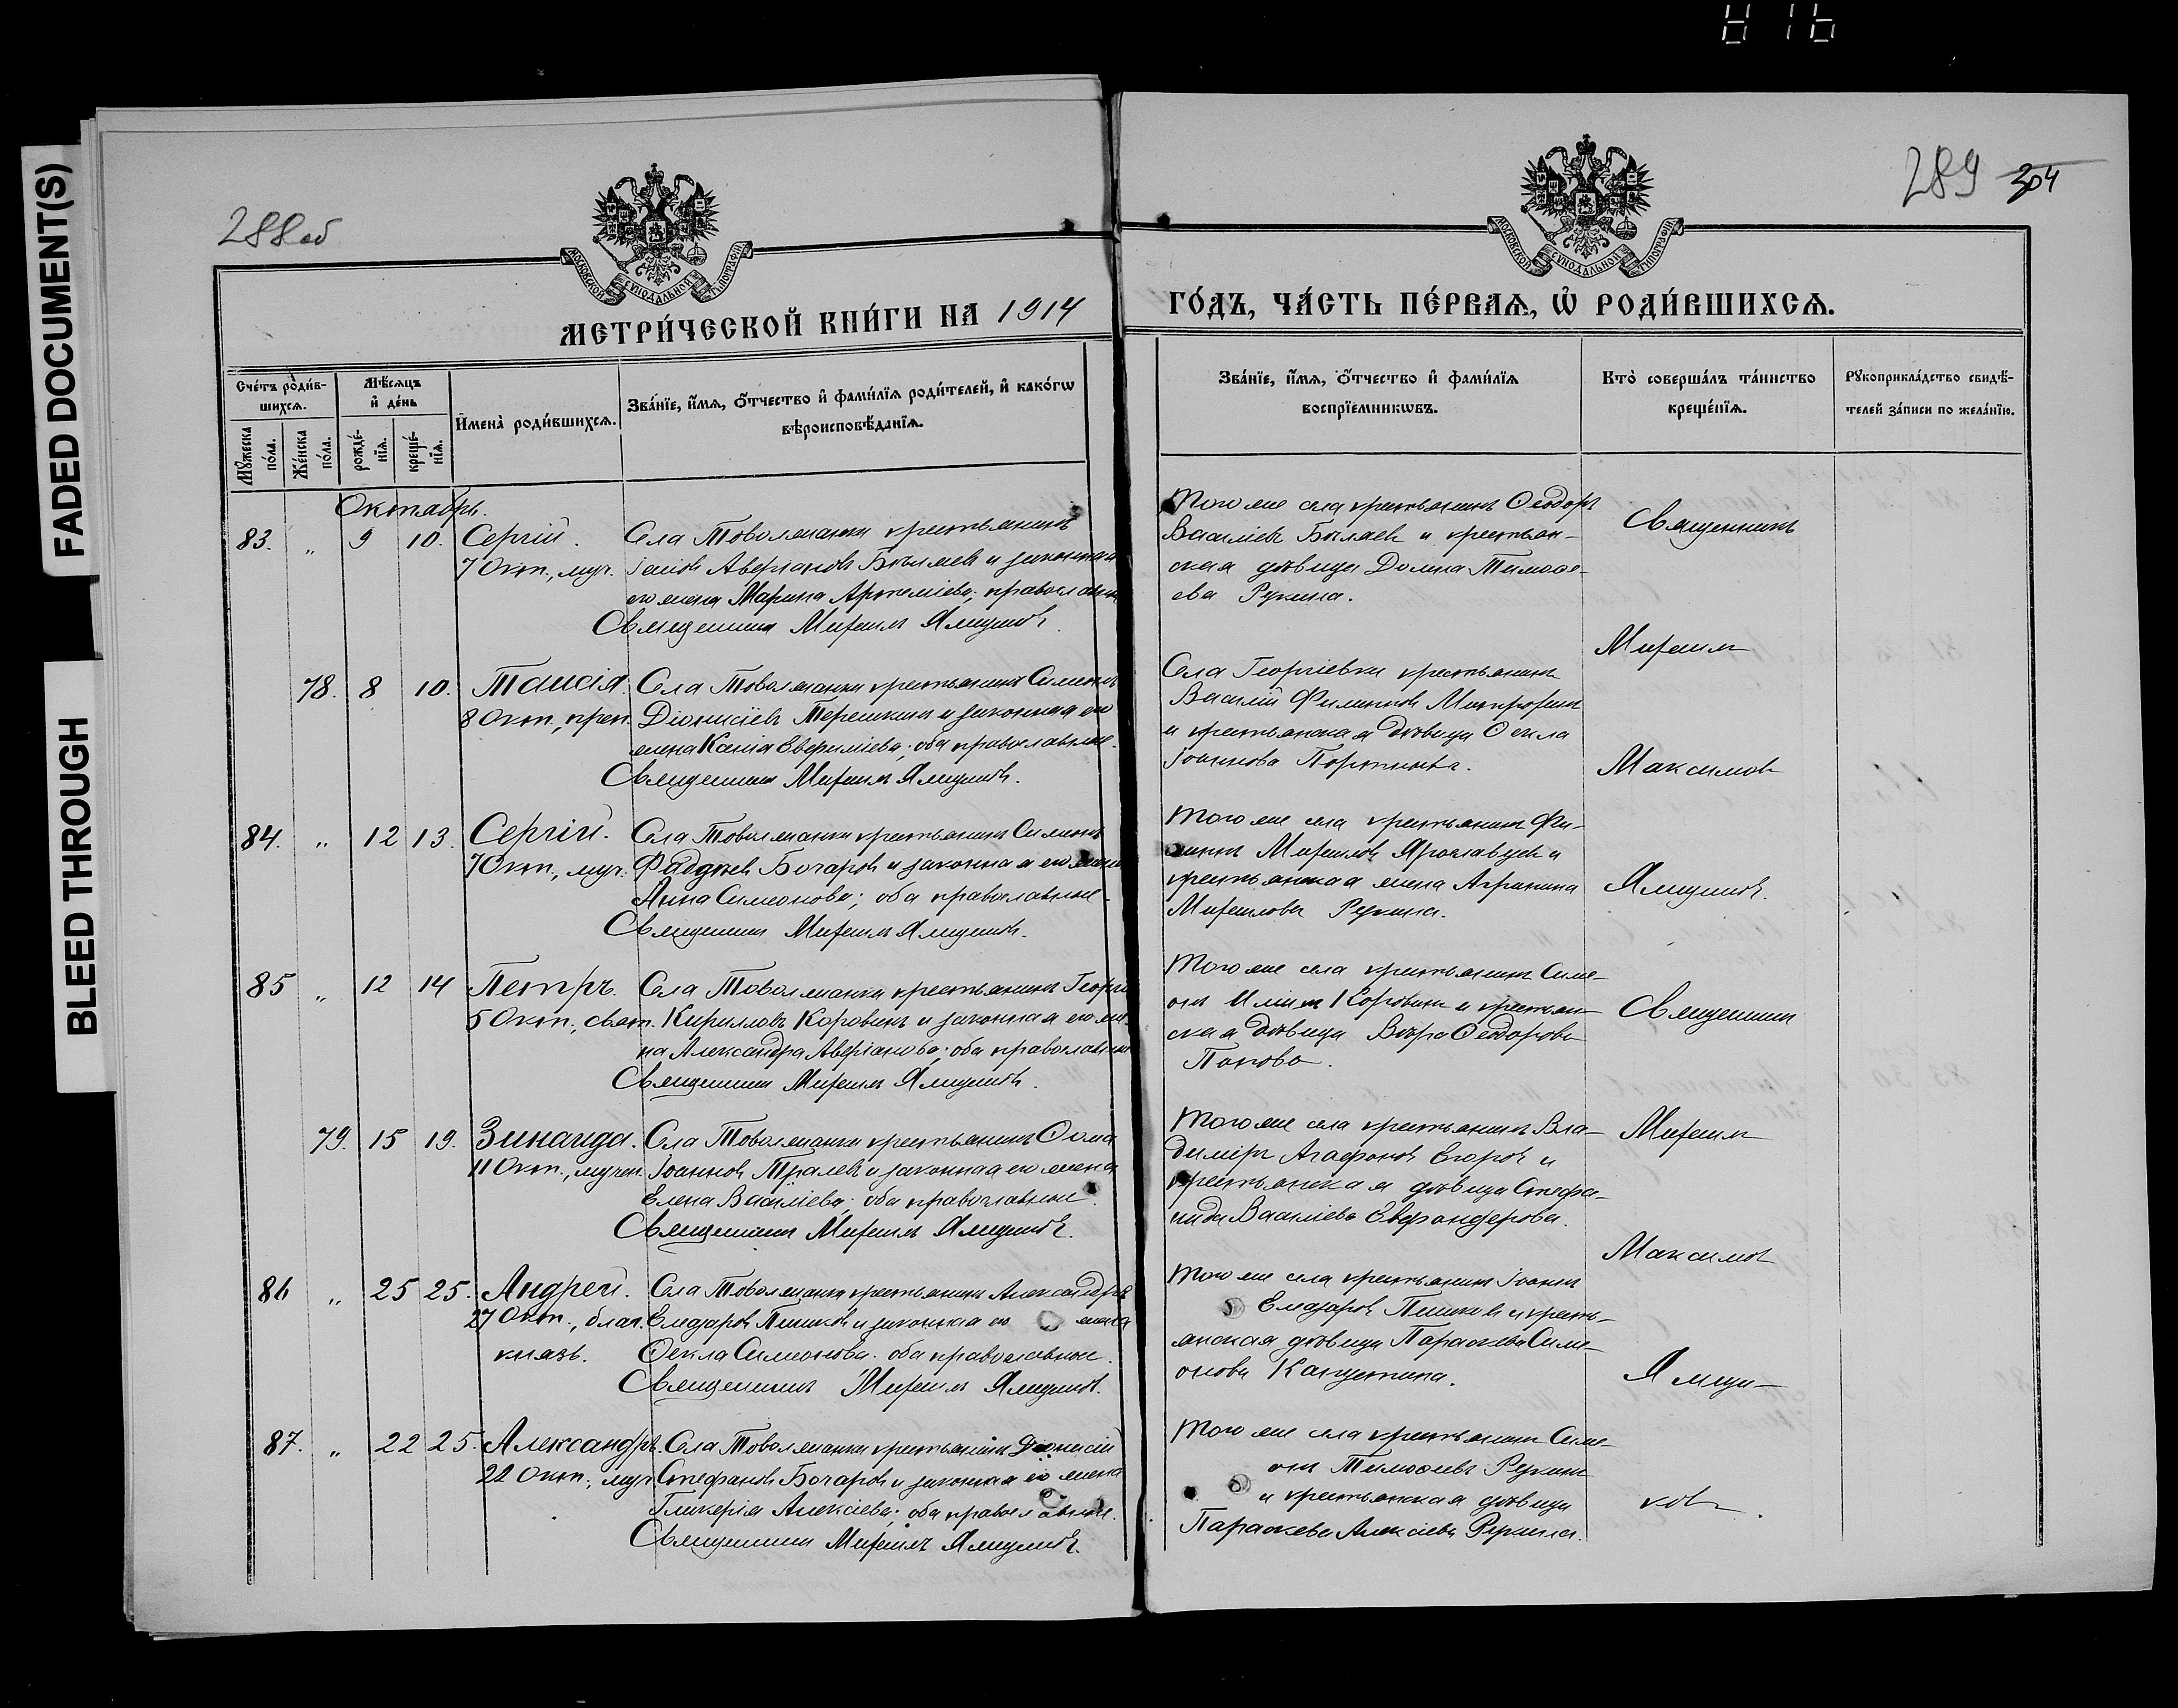 FADED DOCUMENT(S)
BLEED THROUGH
288 об
289 304
МОСКОВСКОЙ СѴНОДАЛЬНОЙ ТИПОГРАФІИ
МОСКОВСКОЙ СѴНОДАЛЬНОЙ ТИПОГРАФІИ
МЕТРИ́ЧЕСКОЙ КНИ́ГИ НА 1914
ГО́ДЪ, ЧА́СТЬ ПЕ́РВАѦ, Ѡ҆ РОДИ́ВШИХСѦ.
Сче́тъ роди́в-
шихсѧ.
Мꙋ́жеска по́ла.
Же́нска по́ла.
Мѣ́сѧцъ и҆ де́нь
рожде́-
нїѧ.
креще́-
нїѧ.
И҆мена̀ роди́вшихсѧ.
Зва́нїе, и҆́мѧ, ѻ҆́тчество и҆ фами́лїѧ роди́телей, и҆ како́гѡ
вѣроисповѣ́данїѧ.
Зва́нїе, и҆́мѧ, ѻ҆́тчество и҆ фами́лїѧ
воспрїе́мникѡвъ.
Кто̀ соверша́лъ та́инство
креще́нїѧ.
Рꙋкоприкла́дство свидѣ́-
телей за́писи по жела́нїю.
Октябрь.
83. „ 9 10. Сергій. Села Товолжанки крестьянинъ
7 Окт., муч. Аверіановъ Бѣляевъ и законная
его жена Марина Артеміева; православн
Священникъ Михаилъ Ямщиковъ.
Того же села крестьянинъ Ѳеодоръ
Василіевъ Бѣляевъ и крестьян-
ская дѣвица Домна Тимоѳе-
ева Рукина.
Священникъ
78. 8 10. Таисія. Села Товолжанки крестьянинъ Симеонъ
8 Окт., преп. Діонисіевъ Терешкинъ и законная его
жена Ксенія Евфиміева; оба православные.
Священникъ Михаилъ Ямщиковъ.
Села Георгіевки крестьянинъ
Василій Филипповъ Митрофанъ
и крестьянская дѣвица Ѳекла
Іоаннова
Михаилъ
Максимовъ
84. „ 12 13. Сергій. Села Товолжанки крестьянинъ Симеонъ
7 Окт., муч. Фаддѣевъ Бочаровъ и законная его жена
Анна Симеонова; оба православные.
Священникъ Михаилъ Ямщиковъ.
Того же села крестьянинъ Фи-
липпъ Михаиловъ Ярославцевъ и
крестьянская жена Агрипина
Михаилова Рукина.
Ямщиковъ.
85 „ 12 14 Петръ. Села Товолжанки крестьянинъ Георгій
5 Окт., свят. Кирилловъ Коровинъ и законная его же-
на Александра Аверіанова; оба православные
Священникъ Михаилъ Ямщиковъ.
Того же села крестьянинъ Симе-
онъ Иліинъ Коровинъ и крестьян-
ская дѣвица Вѣра Ѳеодорова
Попова.
Священникъ
79. 15 19. Зинаида. Села Товолжанки крестьянинъ Ѳома
11 Окт., мучен. Іоанновъ Тралевъ и законная его жена
Елена Василіева; оба православные.
Священникъ Михаилъ Ямщиковъ.
Того же села крестьянинъ Вла-
диміръ Агафоновъ Егоровъ и
крестьянская дѣвица Стефа-
нида Василіева
Михаилъ
Максимовъ
86 „ 25 25. Андрей. Села Товолжанки крестьянинъ Александръ
27 Окт., благ. Елеазаровъ Пешковъ и законная его жена
князь. Ѳекла Симеонова; оба православные.
Священникъ Михаилъ Ямщиковъ.
Того же села крестьянинъ Іоаннъ
Елеазаровъ Пешковъ и кресть-
янская дѣвица Параскева Симе-
онова Капустина.
Ямщи-
87. „ 22 25. Александръ. Села Товолжанки крестьянинъ Діонисій
22 Окт., муч. Стефановъ Бочаровъ и законная его жена
Гликерія Алексіева; оба православные.
Священникъ Михаилъ Ямщиковъ.
Того же села крестьянинъ Симе-
онъ Тимоѳеевъ Рукинъ
и крестьянская дѣвица
Параскева Алексіева Рукина.
ковъ.